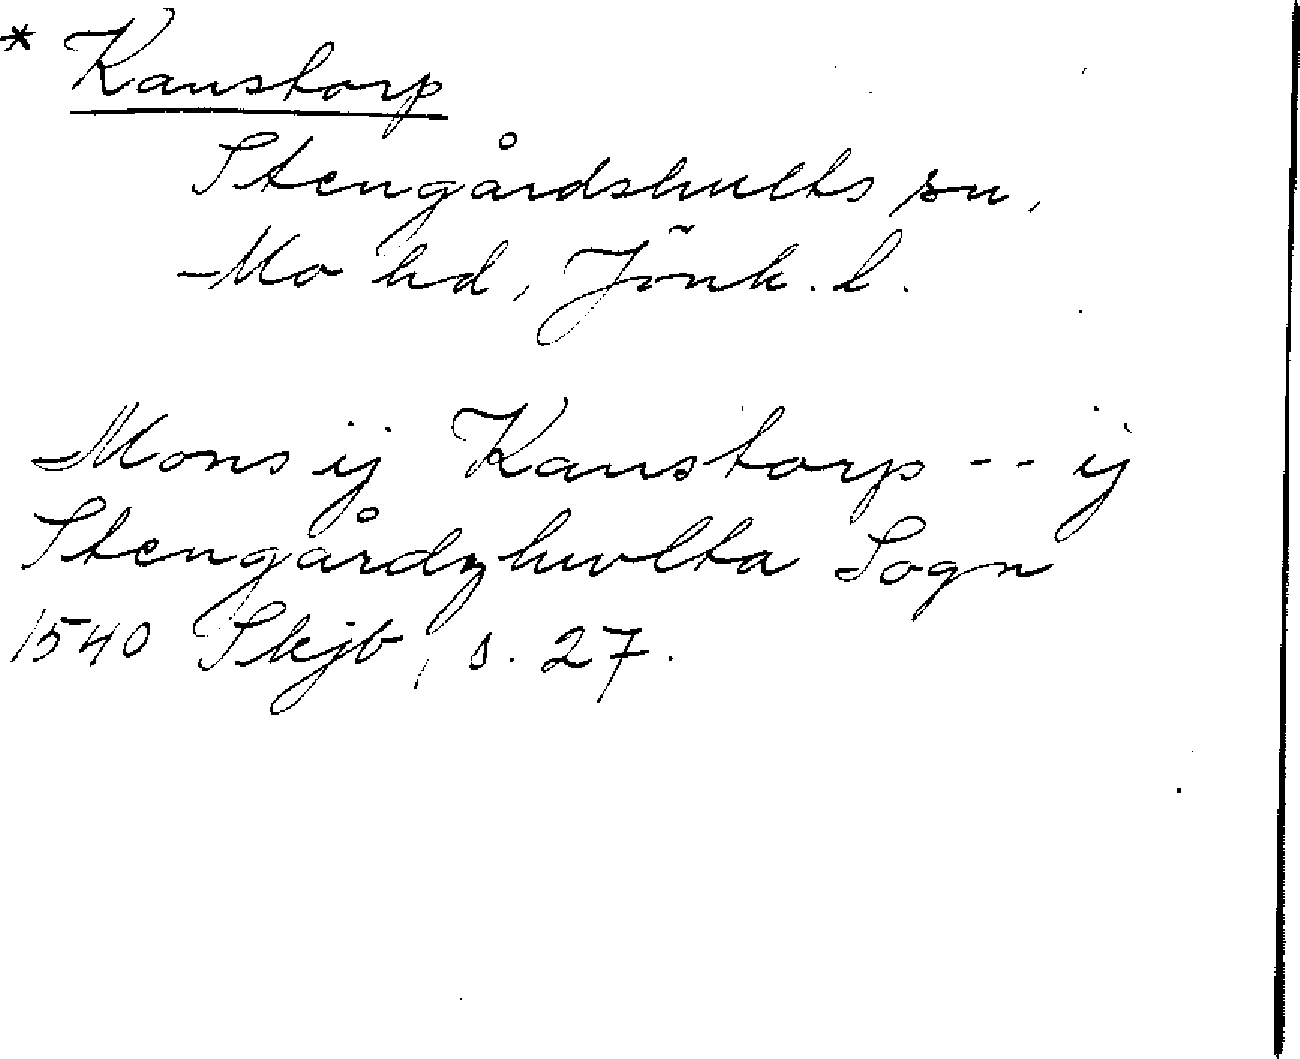 * Kanstorp
Stengårdshults sn,
Mo hd, Jönk. l.
Mons ij Kanstorp -- ij
Stengårdzhwlta Sogn
1540 Skjb, s. 27.